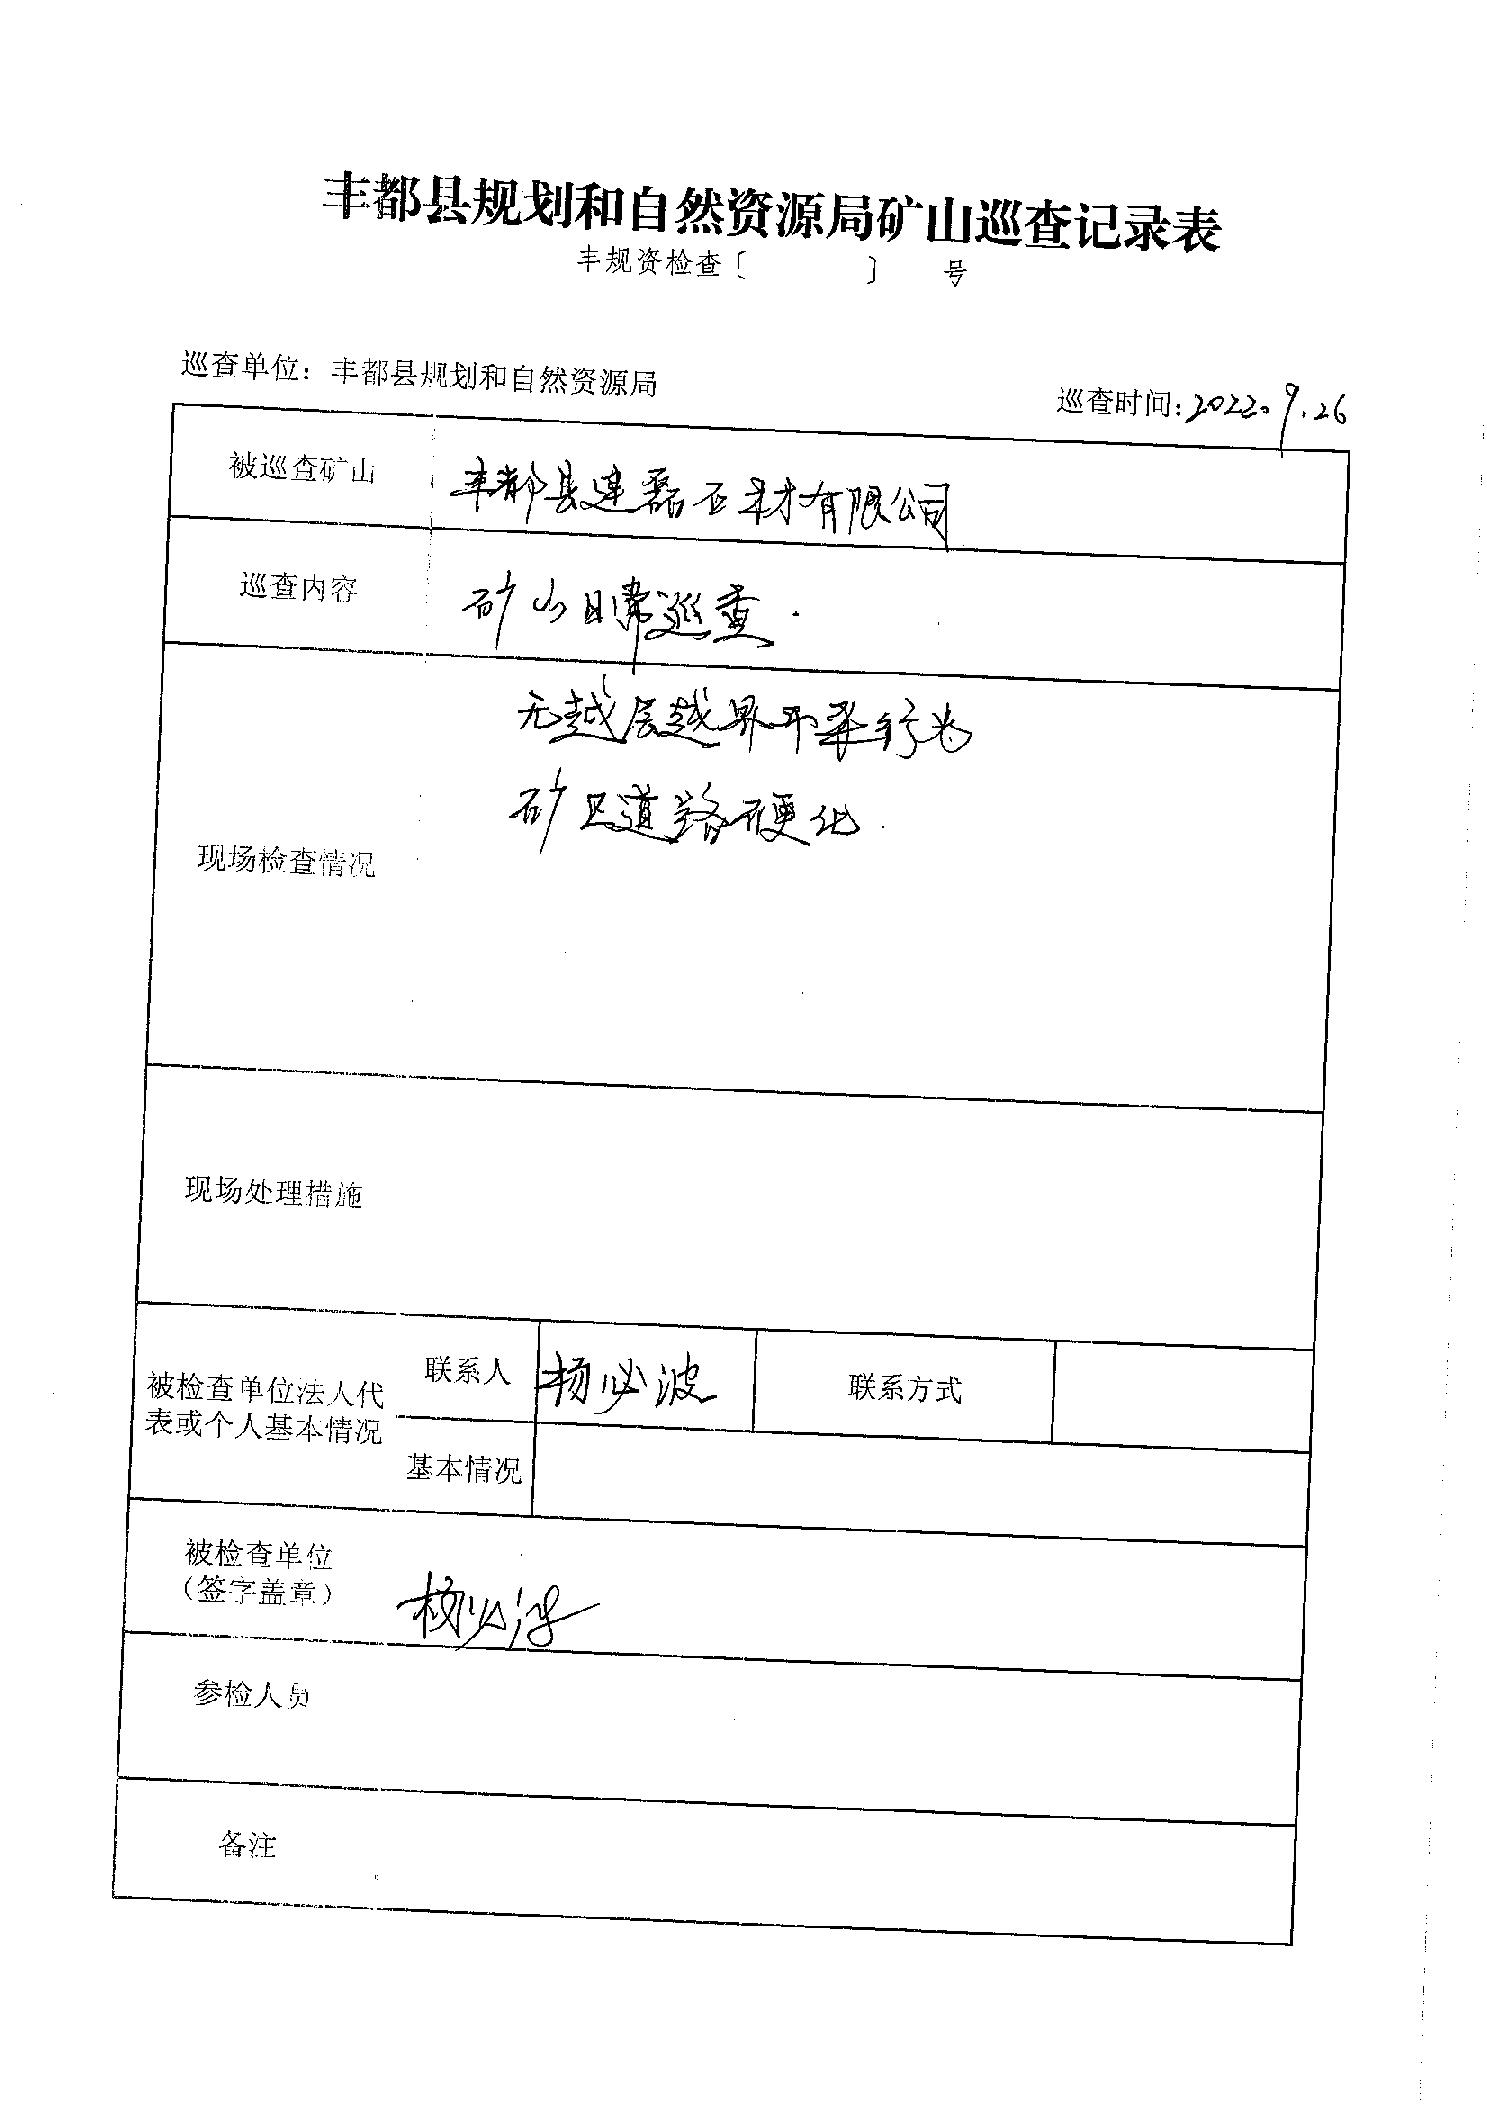 丰都县规划和自然资源局矿山巡查记录表
丰规资检查〔 〕 号
巡查单位：丰都县规划和自然资源局
巡查时间：2022.9.26
被巡查矿山 丰都县建磊石材有限公司
巡查内容 矿山日常巡查.
无越层越界开采行为
矿区道路硬化.
现场检查情况
现场处理措施
被检查单位法人代
表或个人基本情况
联系人 杨必波 联系方式
基本情况
被检查单位
（签字盖章）
杨必波
参检人员
备注